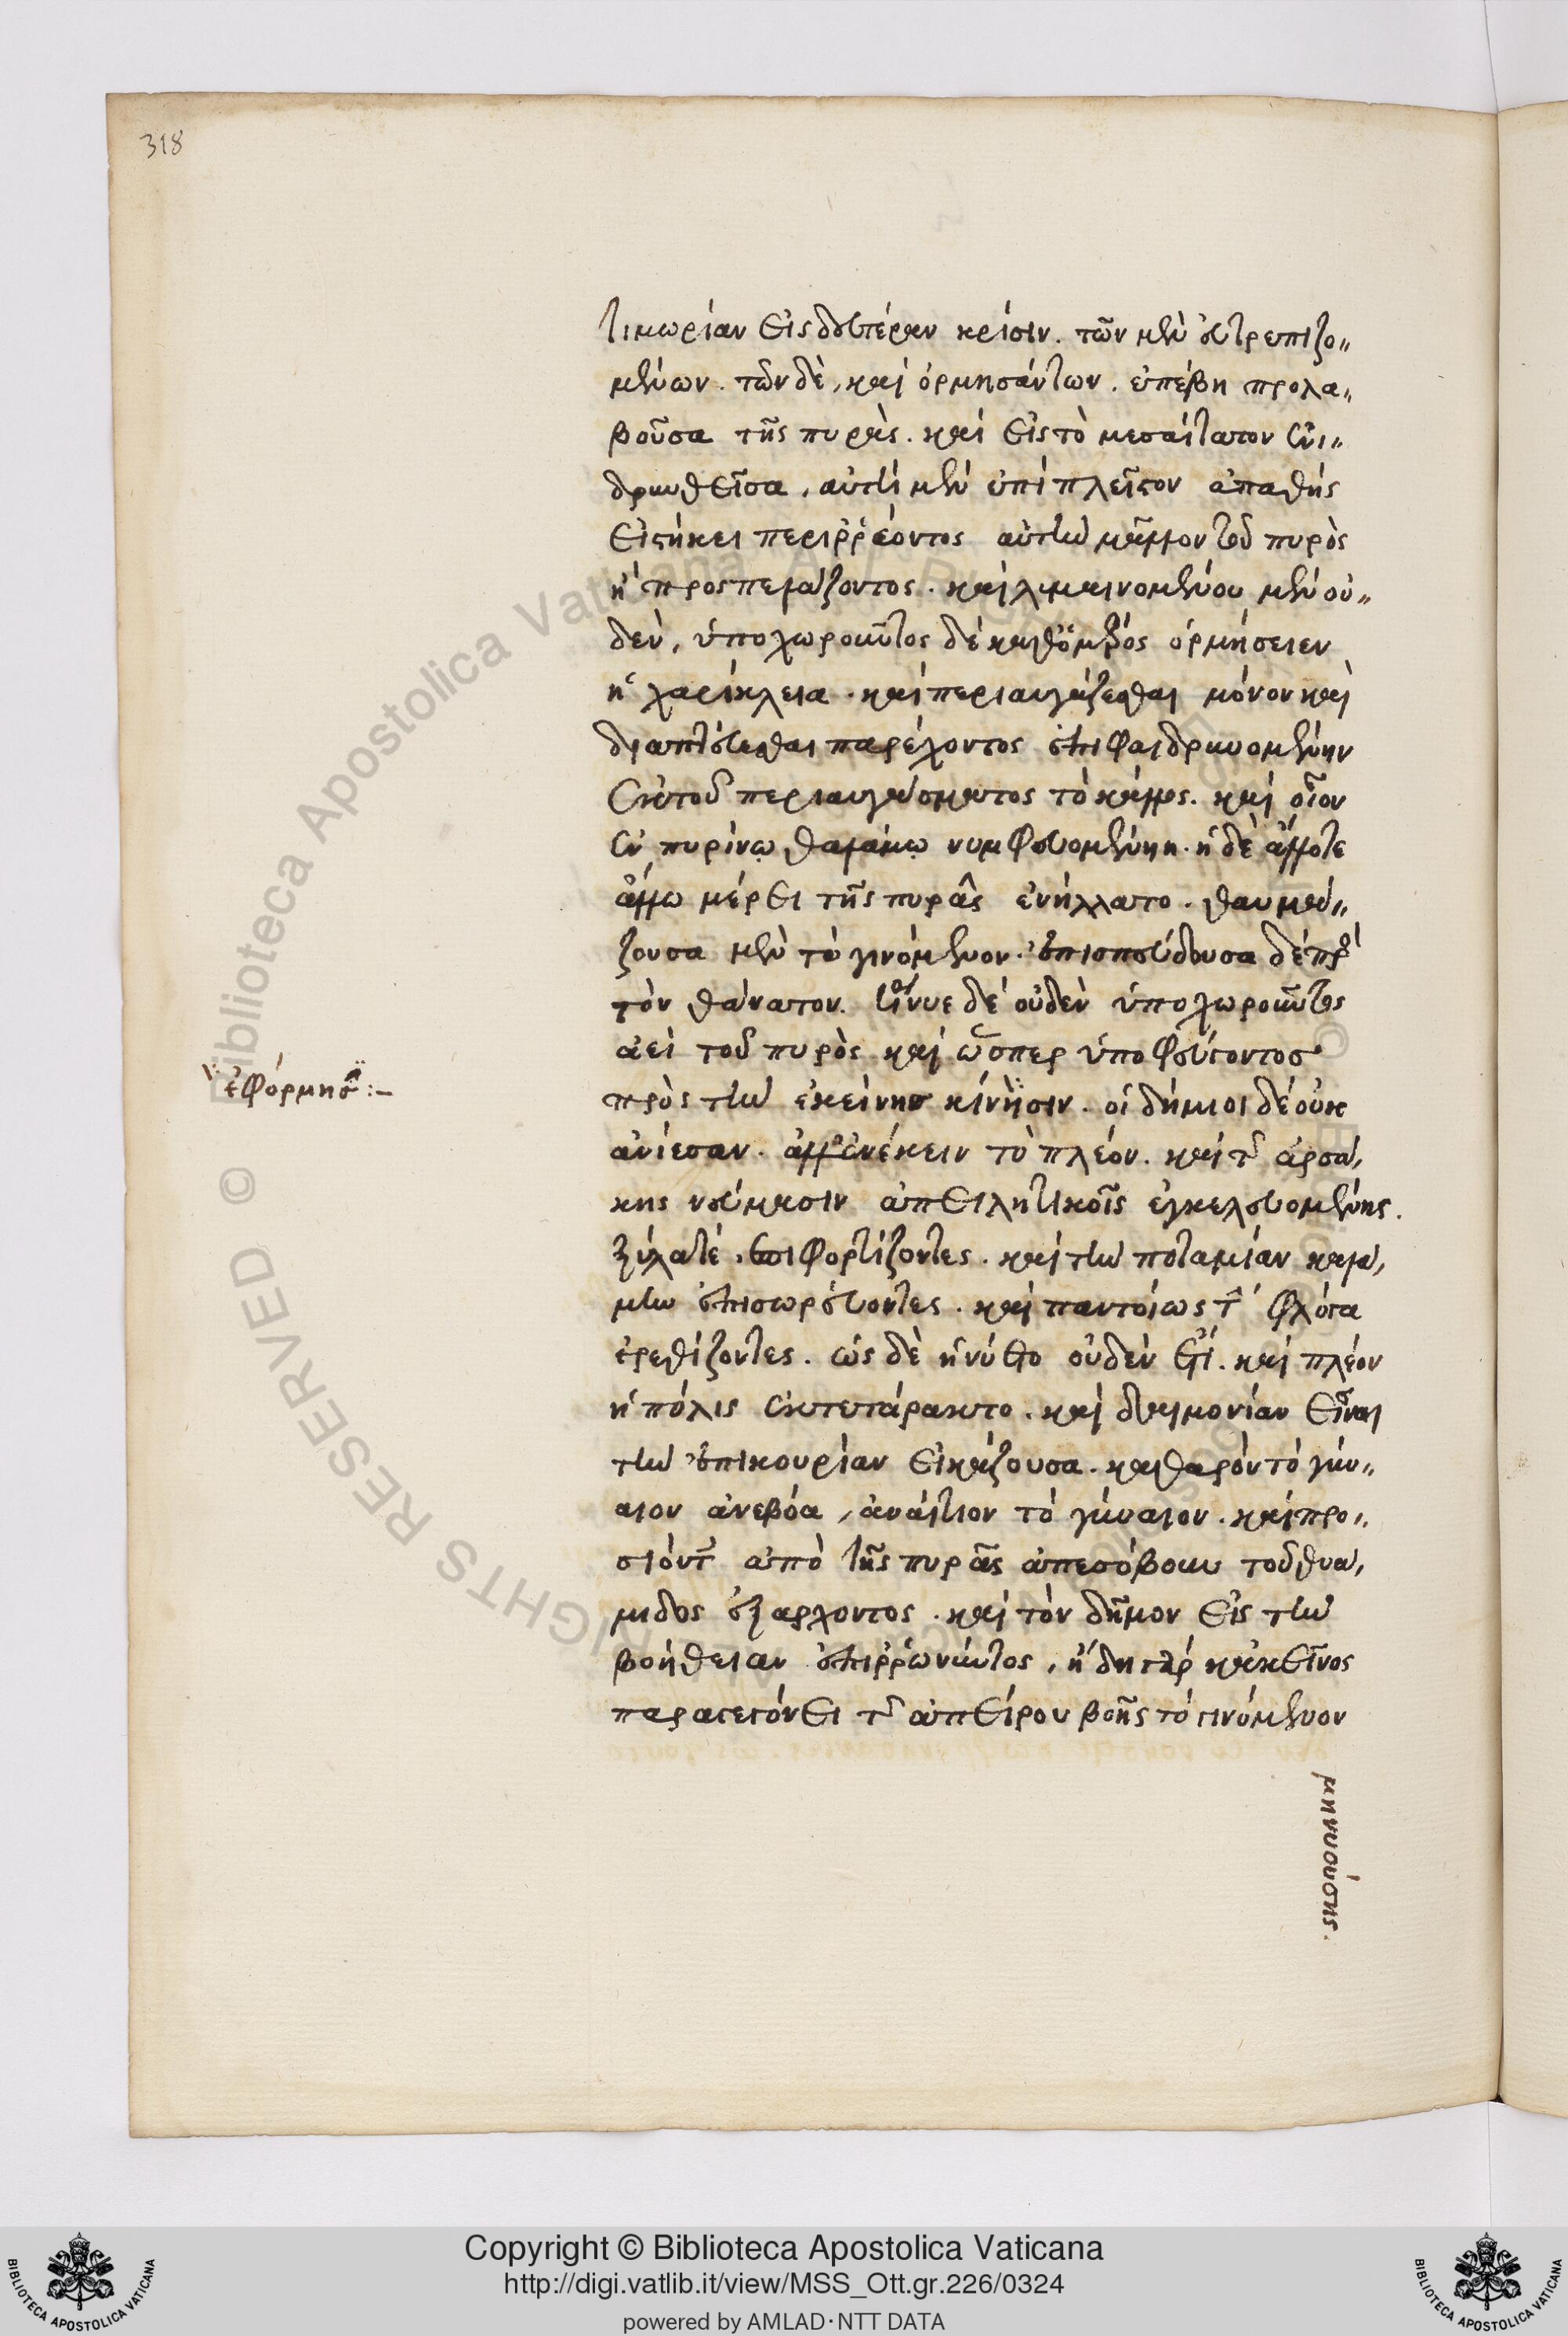 318
τιμωρίαν εἰς δευτέραν κρίσιν. τῶν μὲν εὐτρεπιζο„
μένων. τῶν δὲ, καὶ ὁρμησάντων. ἐπέβη προλα„
βοῦσα τῆς πυρὰς. καὶ εἰς τὸ μεσαίτατον ἐνι„
δρυθεῖσα, αὐτὴ μὲν ἐπὶ πλεῖστον ἀπαθὴς
εἰστήκει περιῤῥέοντος αὐτὴν μᾶλλον τοῦ πυρὸς
ἢ προσπελάζοντος. καὶ λυμαινομένου μὲν οὐ„
δὲν, ὑποχωροῦντος δὲ καθ' ὃ μέρος ὁρμήσειεν
ἡ χαρίκλεια. καὶ περιαυγάζεσθαι μόνον καὶ
διαπτεύεσθαι παρέχοντος ἐπιφαιδρυνομένην
ἐκ τοῦ περιαυγάσματος τὸ κάλλος. καὶ οἷον
ἐν πυρίνῳ θαλάμῳ νυμφευομένην. ἡ δὲ ἄλλοτε
ἄλλω μέρει τῆς πυρᾶς ἐνήλλατο. θαυμά„
ζουσα μὲν τὸ γινόμενον. ἐπισπεύδουσα δὲ πρὸς
τὸν θάνατον. ἤνυε δὲ οὐδὲν ὑποχωροῦντος
ἀεὶ τοῦ πυρὸς καὶ ὥσπερ ὑποφεύγοντος
πρὸς τὴν ἐκείνης κίνησιν. οἱ δήμιοι δὲ οὐκ
ἐφόρμησιν:-
ἀνίεσαν. ἀλλ' ἐνέκειν τὸ πλέον. καὶ τῆς ἀρσά,
κης νεύμασιν ἀπειλητικοῖς ἐγκελευομένης.
ξύλά τέ, ἐπιφορτίζοντες. καὶ τὴν ποταμίαν καλά,
μην ἐπισωρεύοντες. καὶ παντοίως τὴν φλόγα
ἐρεθίζοντες. ὡς δὲ ἠνύετο οὐδὲν ἔτι. καὶ πλέον
ἡ πόλις ἐκτετάρακτο. καὶ δαιμονίαν εἶναι
τὴν ἐπικουρίαν εἰκάζουσα. καθαρὸν τὸ γύν„
αιον ἀνεβόα, ἀναίτιον τὸ γύναιον. καὶ προ„
σιόντες ἀπὸ τῆς πυρᾶς ἀπεσόβουν τοῦ θυά,
μιδος ἐξαρχοντος. καὶ τὸν δῆμον εἰς τὴν
βοήθειαν ἐπιῤῥωννύντος, ἤδη γὰρ κἀκεῖνος
παραγεγόνει τῆς ἀπείρου βοῆς τὸ γινόμενον
μηνυσούσης.
Copyright © Biblioteca Apostolica Vaticana
http://digi.vatlib.it/view/MSS_Ott.gr.226/0324
powered by AMLAD·NTT DATA
BIBLIOTECA APOSTOLICA VATICANA
BIBLIOTECA APOSTOLICA VATICANA